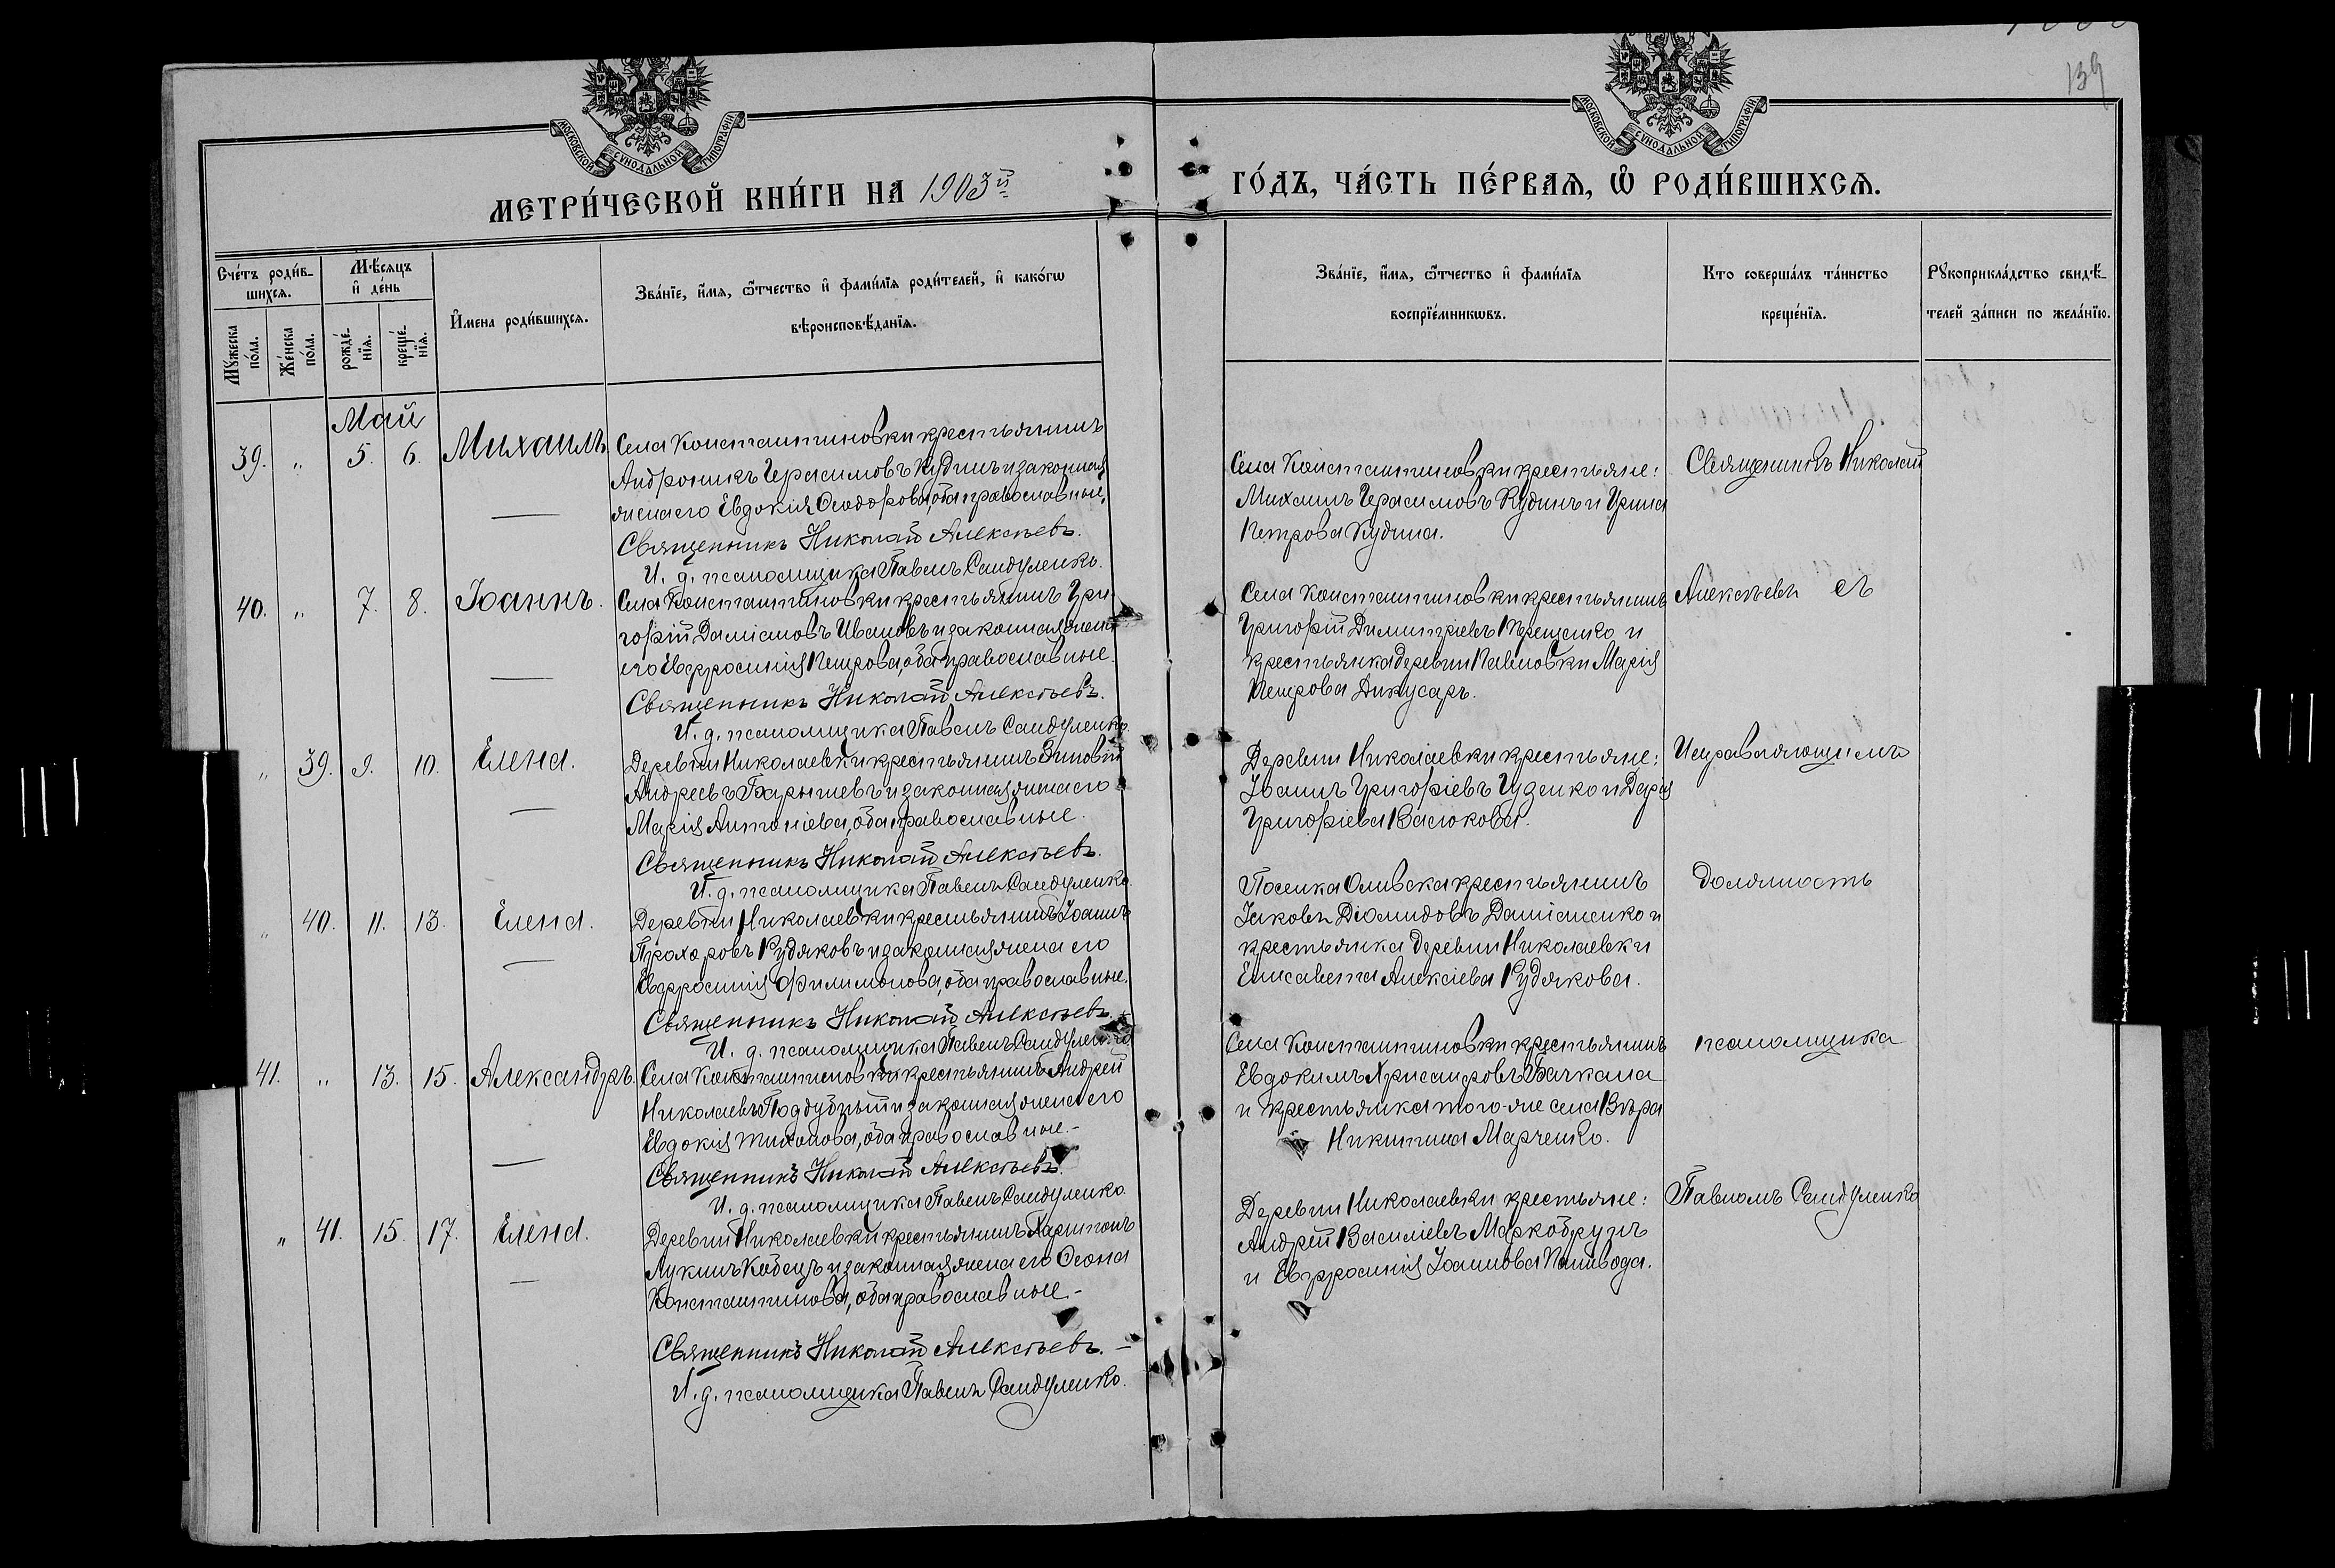 139
МОСКОВСКОЙ СѴНОДАЛЬНОЙ ТИПОГРАФІИ
МОСКОВСКОЙ СѴНОДАЛЬНОЙ ТИПОГРАФІИ
МЕТРИ́ЧЕСКОЙ КНИ́ГИ НА 1903й
ГО́ДЪ, ЧА́СТЬ ПЕ́РВАѦ, Ѽ РОДИ́ВШИХСѦ.
Сче́тъ роди́в-
шихсѧ.
Мꙋжеска по́ла.
Же́нска по́ла.
Мѣ́сѧцъ и҆ де́нь
рожде́-нїѧ.
креще́-нїѧ.
И҆мена роди́вшихсѧ.
Зва́нїе, и҆́мѧ, ѻ҆́тчество и҆ фами́лїѧ роди́телей, и҆ како́гѡ
вѣроисповѣ́данїѧ.
Зва́нїе, и҆́мѧ, ѻ҆́тчество и҆ фами́лїѧ
воспрїе́мникѡвъ.
Кто соверша́лъ та́инство
креще́нїѧ.
Рꙋкоприкла́дство свидѣ́-
телей за́писи по жела́нїю.
Май
39. " 5. 6. Михаилъ
Села Константиновки крестьянинъ
Андроникъ Герасимовъ Кудинъ и законная
жена его Евдокія Ѳеодорова, оба православные.
Священникъ Николай Алексѣевъ.
И. д. псаломщика Павелъ Сандуленко.
Села Константиновки крестьяне:
Михаилъ Герасимовъ Кудинъ и Ирина
Петрова Кудина.
Священникъ Николай
40. " 7. 8. Іоаннъ.
Села Константиновки крестьянинъ Гри-
горій Даміановъ Ивановъ и законная жена
его Евфросинія Петрова, оба православные.
Священникъ Николай Алексѣевъ.
И. д. псаломщика Павелъ Сандуленко.
Села Константиновки крестьянинъ
Григорій Димитріевъ и
крестьянка деревни Павловки Марія
Петрова Дикусаръ.
Алексѣевъ съ
" 39. 9. 10. Елена.
Деревни Николаевки крестьянинъ Зиновій
Андреевъ Барышевъ и законная жена его
Марія Антоніева, оба православные.
Священникъ Николай Алексѣевъ.
И. д. псаломщика Павелъ Сандуленко.
Деревни Николаевки крестьяне:
Іоаннъ Григоріевъ Гузенко и Дарія
Григоріева Васюкова.
Исправляющимъ
" 40. 11. 13. Елена.
Деревни Николаевки крестьянинъ Іоаннъ
Прохоровъ Рудяковъ и законная жена его
Евфросинія Филимонова, оба православные.
Священникъ Николай Алексѣевъ.
И. д. псаломщика Павелъ Сандуленко
Поселка крестьянинъ
Іаковъ Діомидовъ Даміаненко и
крестьянка деревни Николаевки
Елисавета Алексіева Рудякова.
должность
41. " 13. 15. Александръ.
Села Константиновки крестьянинъ Андрей
Николаевъ Поддубный и законная жена его
Евдокія Тихонова, оба православные.-
Священникъ Николай Алексѣевъ.
И. д. псаломщика Павелъ Сандуленко.
Села Константиновки крестьянинъ
Евдокимъ Хрисанфовъ Бачкала
и крестьянка того-же села Вѣра
Никитина Марченко.
псаломщика
" 41. 15. 17. Елена.
Деревни Николаевки крестьянинъ Харитонъ
Лукинъ Кобецъ и законная жена его Ѳеона
Константинова, оба православные.-
Священникъ Николай Алексѣевъ.-
И. д. псаломщика Павелъ Сандуленко.
Деревни Николаевки крестьяне:
Андрей Василіевъ
и Евфросинія Іоаннова Паливода.
Павломъ Сандуленко